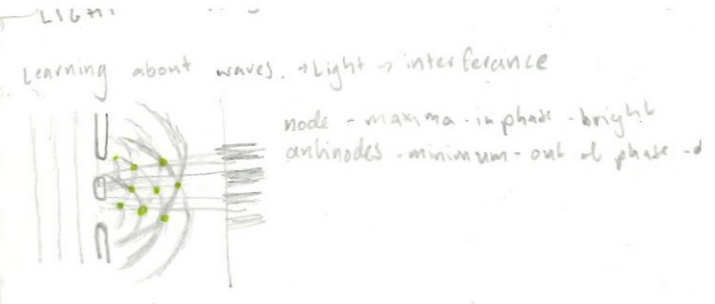 LIGHT
Learning about waves. → Light → interferance
node - maxima - in phase - bright
antinodes - minimum - out of phase - d